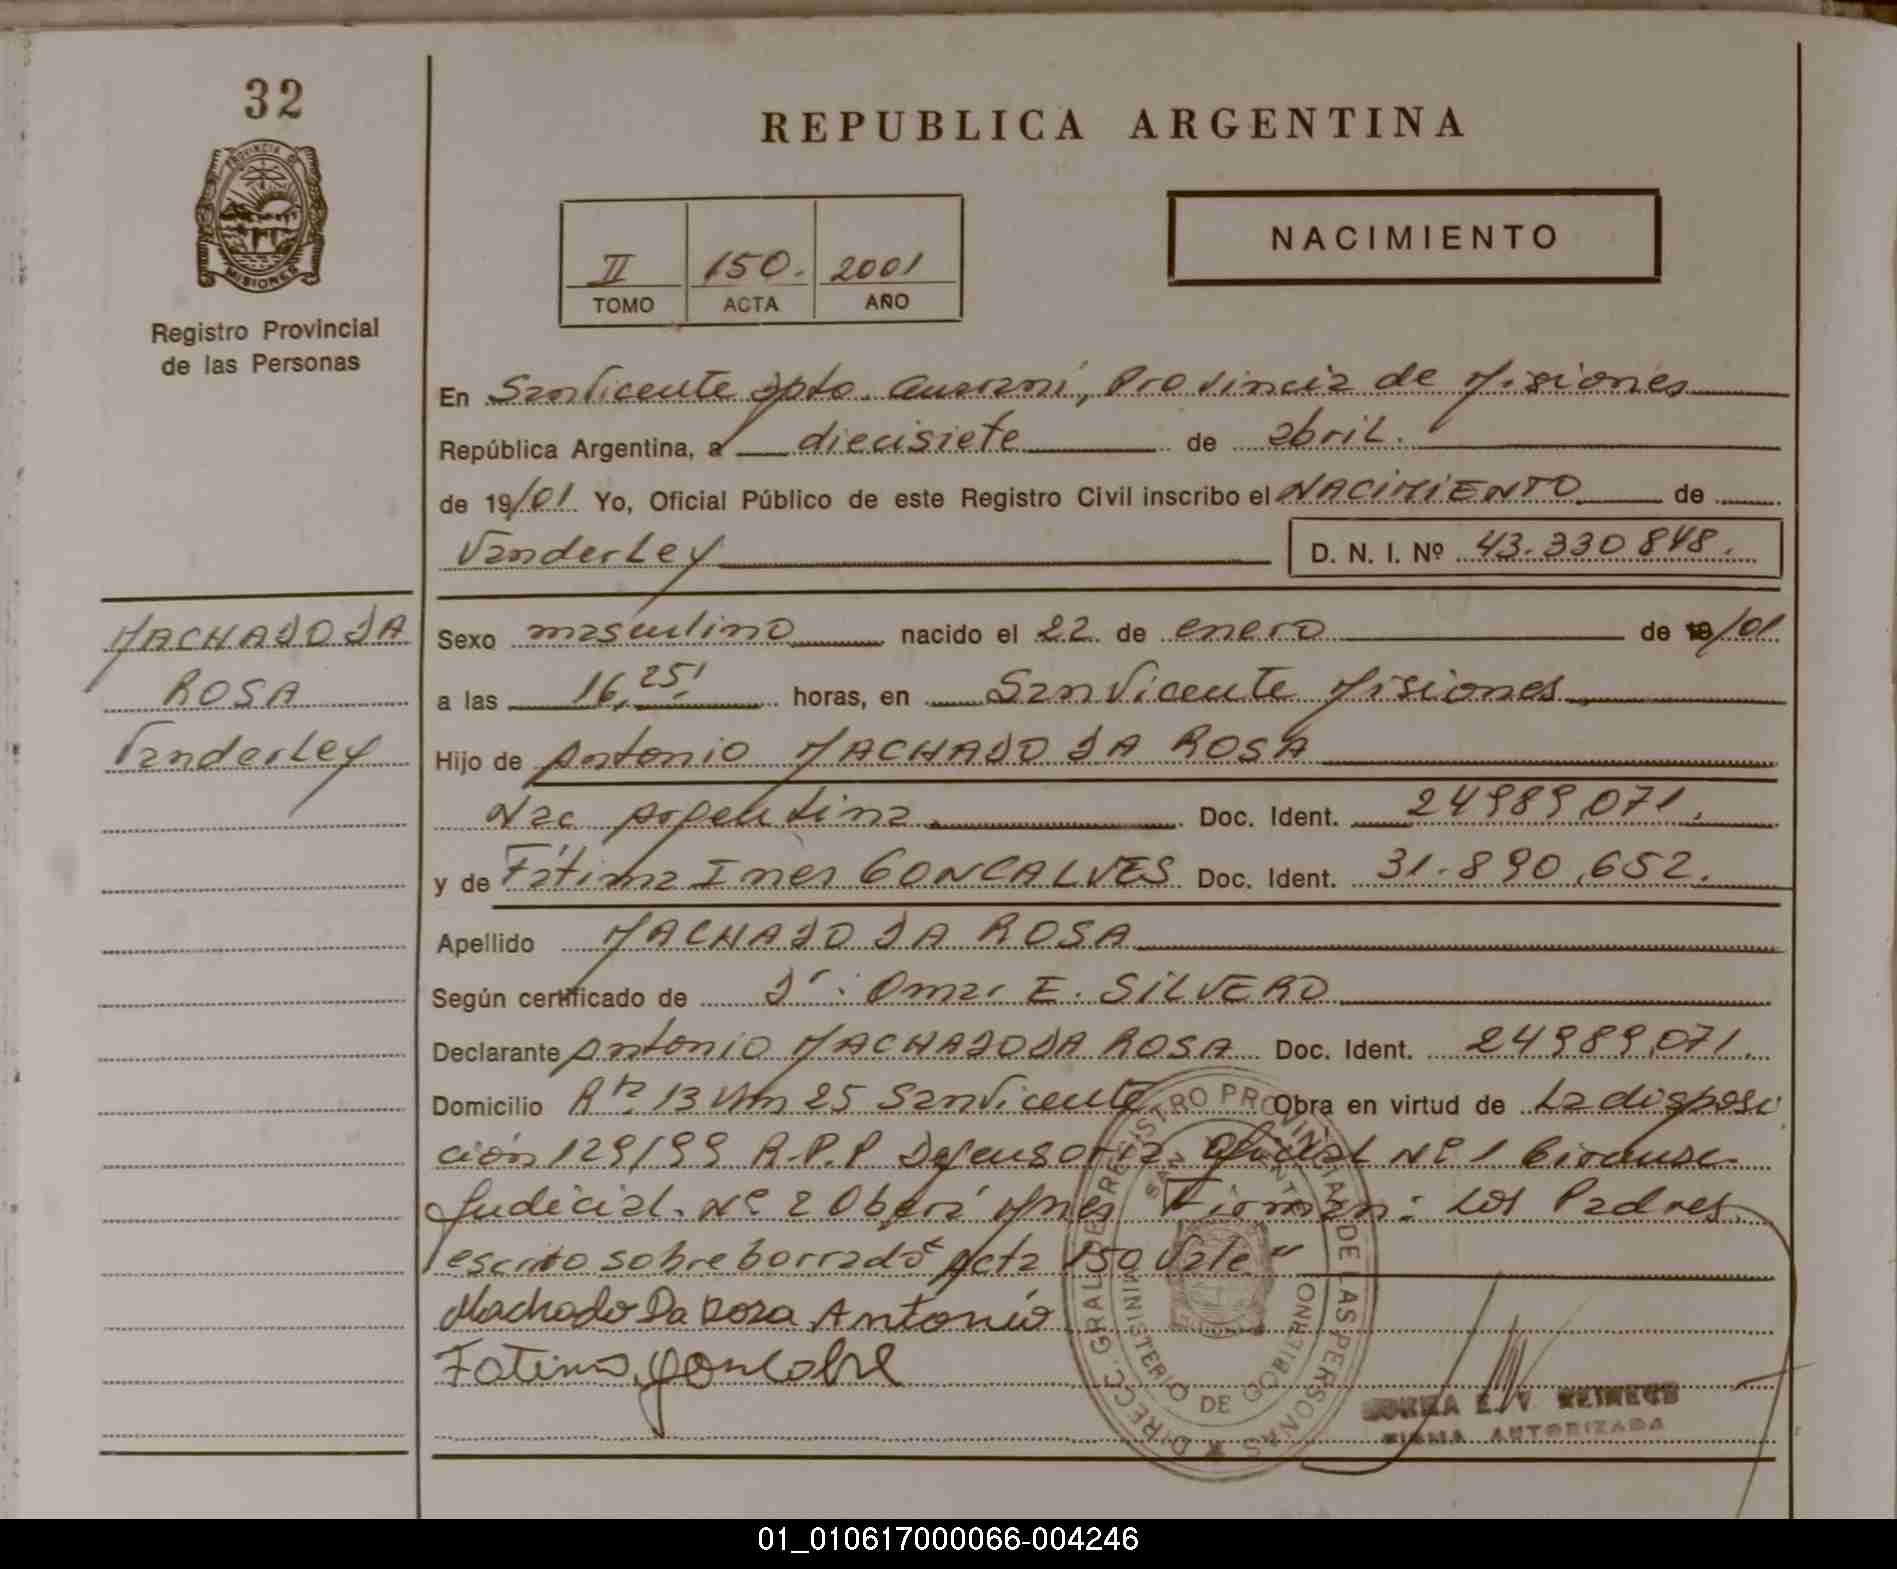 32
PROVINCIA D
MISIONES
Registro Provincial
de las Personas
REPUBLICA ARGENTINA
II 150. 2001
TOMO ACTA AÑO
NACIMIENTO
En San Vicente Dpto. Guaraní, Provincia de Misiones
República Argentina, a diecisiete de abril.
de 19/01 Yo, Oficial Público de este Registro Civil inscribo el NACIMIENTO de
Vanderley D. N. I. Nº 43.330 848.
MACHADO DA
ROSA
Vanderley
Sexo masculino nacido el 22 de enero de 19/01
a las 16,25' horas, en San Vicente Misiones
Hijo de Antonio MACHADO DA ROSA
Nac Argentina Doc. Ident. 24989,071.
y de Fátima Inés GONCALVES Doc. Ident. 31.890,652.
Apellido MACHADO DA ROSA
Según certificado de Dr: Omar E. SILVERO
Declarante Antonio MACHADO DA ROSA Doc. Ident. 24989,071.
Domicilio Rta 13 Km 25 San Vicente Obra en virtud de La disposi
ción 129/99 R.P.P Defensoria Oficial Nº 1 Circunsc
Judicial. Nº 2 Oberá Mnes Firman: Los Padres
escrito sobre borrado "Acta 150 Vale"
Machado Da Rosa Antonio
Fatima goncalve
DIRECC. GRAL DE REGISTRO PROVINCIAL DE LAS PERSONAS
MINISTERIO DE GOBIERNO
FIRMA AUTORIZADA
01_010617000066-004246